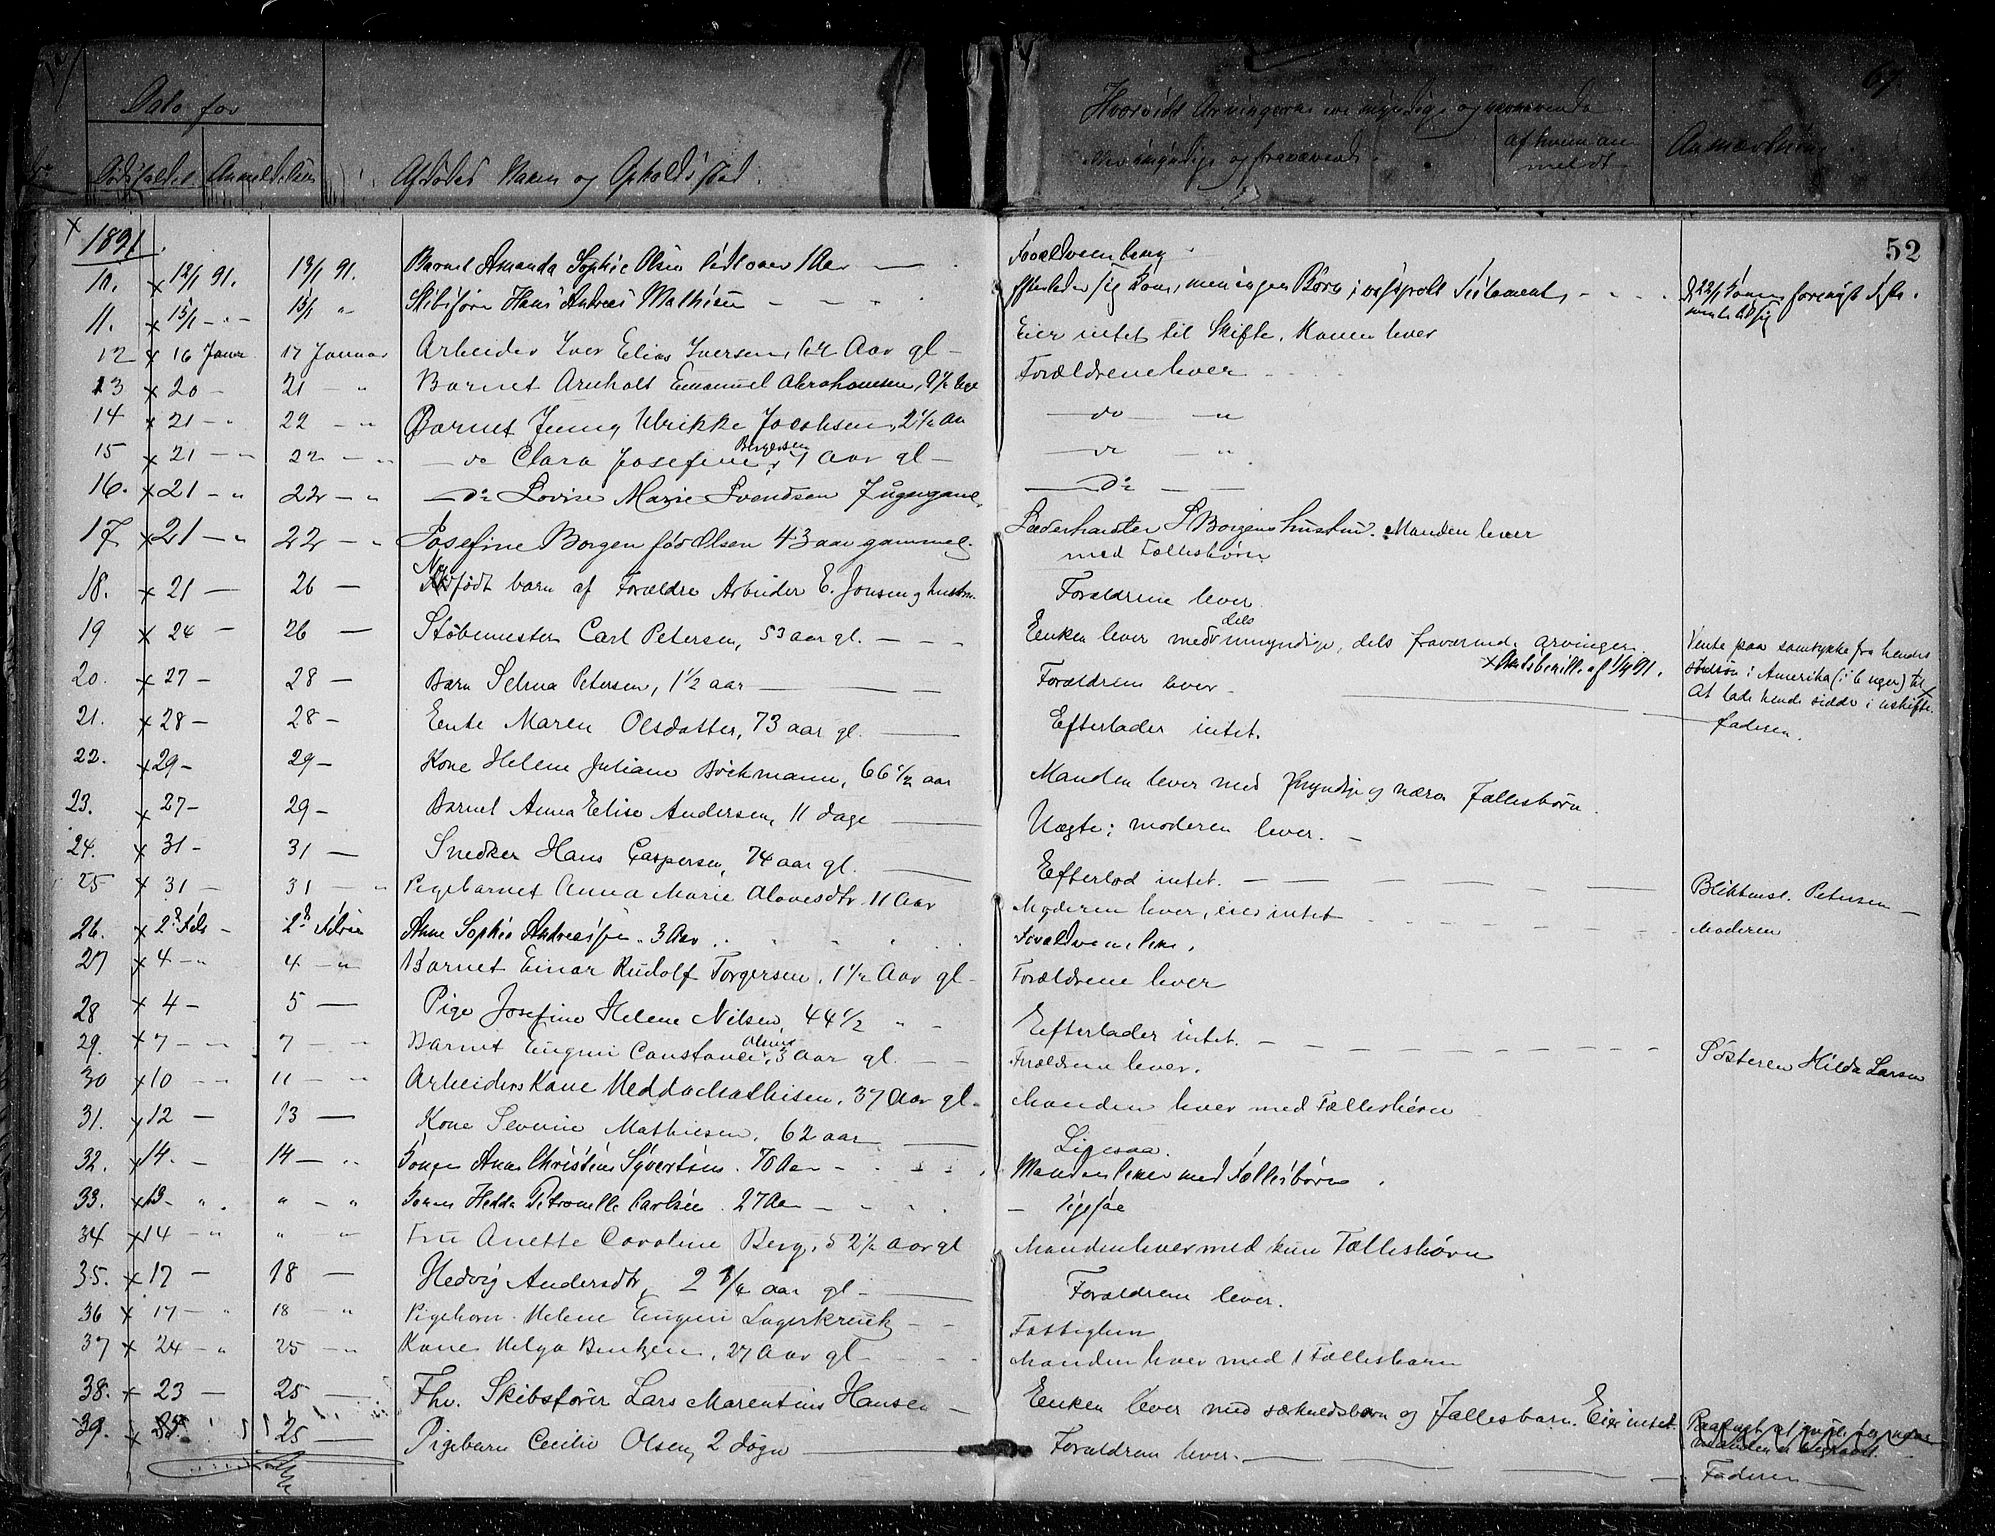 Dato for
Dødsfaldet Anmeldelsen Afdødes Navn og Opholdssted. Hvorvidt Arvingerne ere myndige og nærværende eller umyndige og fraværende. af hvem anmeldt Anmærkning
67
52
1891
10. x 12/1 91. 13/1 91. Barnet Amanda Sophie Olsen 1 Aar —
11. x 13/1 — " 13/1 " Skibsfører Hans Andreas Mathisen — Efterlader sig Kone, men ingen Børn,
12 x 16 Janr 17 Januar Arbeider Iver Elias Iversen, 64 Aar gl — Eier intet til Skifte. Konen lever
13 x 20 — 21 — " Barnet Arnholt Emanuel Abrahamsen, Forældrene lever
14 x 21 — " 22 — " Barnet Jenny Ulrikke Jacobsen, 2 1/2 Aar — do — "
15 x 21 — " 22 — " — do Clara Josefine Bergersen, 1 Aar gl — — do — "
16. x 21 — " 22 — " — Do Lovise Marie Svendsen 7 uger gammel — Do —
17 x 21 — " 22 — " Josefine Borgen født Olsen 43 aar gammel. Læderhandler S Borgens hustru. Manden lever
med Fællesbørn
18. x 21 — 26 — Nyfødt barn af Forældre Arbeider E. Jonsen og hustru Forældrene lever.
19 x 24 — 26 — Støbemester Carl Petersen, 53 aar gl. — Enken lever med dels umyndige, dels fraværende arvinger. Vente paa samtykke fra hendes
x Amtsbevill. af 1/4 91. i Amerika (i 6 uger) til x
At lade hende sidde i uskifte.
20. x 27 — 28 — Barn Selma Petersen, 1 1/2 aar — Forældrene lever — faderen.
21. x 28 — 28 — Enke Maren Olsdatter, 73 aar gl. — Efterlader intet.
22. x 29 — 29 — Kone Helene Juliane Böckmann, 66 1/2 aar Manden lever med myndige og nærv. Fællesbørn.
23. x 27 — 29 — Barnet Anna Elise Andersen, 11 dage — Uægte; moderen lever. —
24. x 31 — 31 — Snedker Hans Caspersen, 74 aar gl. — Efterlod intet. — Blikkensl. Petersen —
25 x 31 — 31 — " Pigebarnet Anna Marie Olavesdtr. 11 Aar Moderen lever, eier intet Moderen
26. x 2d Febr — 2d Febr Anne Sophie 3 Aar Forældrene leve.
27 x 4 — " 4 — " Barnet Einar Rudolf Torgersen, 1 1/2 Aar gl — Forældrene lever
28 x 4 — 5 — Pige Josefine Helene Nilsen, 44 1/2 " — Efterlader intet. — Søsteren Hilda Larsen
29. x 7 — " 7 — " Barnet Eugeni Constance Olsen, 3 Aar gl. — Forældrene lever.
30 x 10 — " 11 — " Arbeiders Kone Hedda Mathisen, 37 Aar gl — Manden lever med Fællesbørn
31. x 12 — 13 — Kone Severine Mathiesen, 62 aar — Ligesaa.
32. x 14. — 14 — " Konen Anne Christine Syvertsen. 70 Aar — Manden lever med Fællesbørn.
33. x 13 — " " — " Konen Hedda Petronelle Carlsen. 27 Aar — — ligesaa
34 x 14 — " " — " Fru Anette Caroline Berg, 52 1/2 Aar gl Manden lever med kun Fællesbørn
35. x 17 — 18 — Hedvig Andersdtr, 2 3/4 aar gl — Forældrene lever.
36 x 17 — " 18 — " Pigebarn Helene Eugeni Lagerkreutz — Fattiglem
37 x 24 — " 25 — " Kone Helga Bentzen, 27 Aar gl — Manden lever med 1 Fællesbarn
38. x 23 — 25 — Fhv. Skibsfører Lars Marentius Hansen — Enken lever med særkuldsbørn og Fællesbarn. Eier intet.
39. x 25 — Pigebarn Cecilie Olsen, 2 døgn — Forældrene lever. — Faderen —